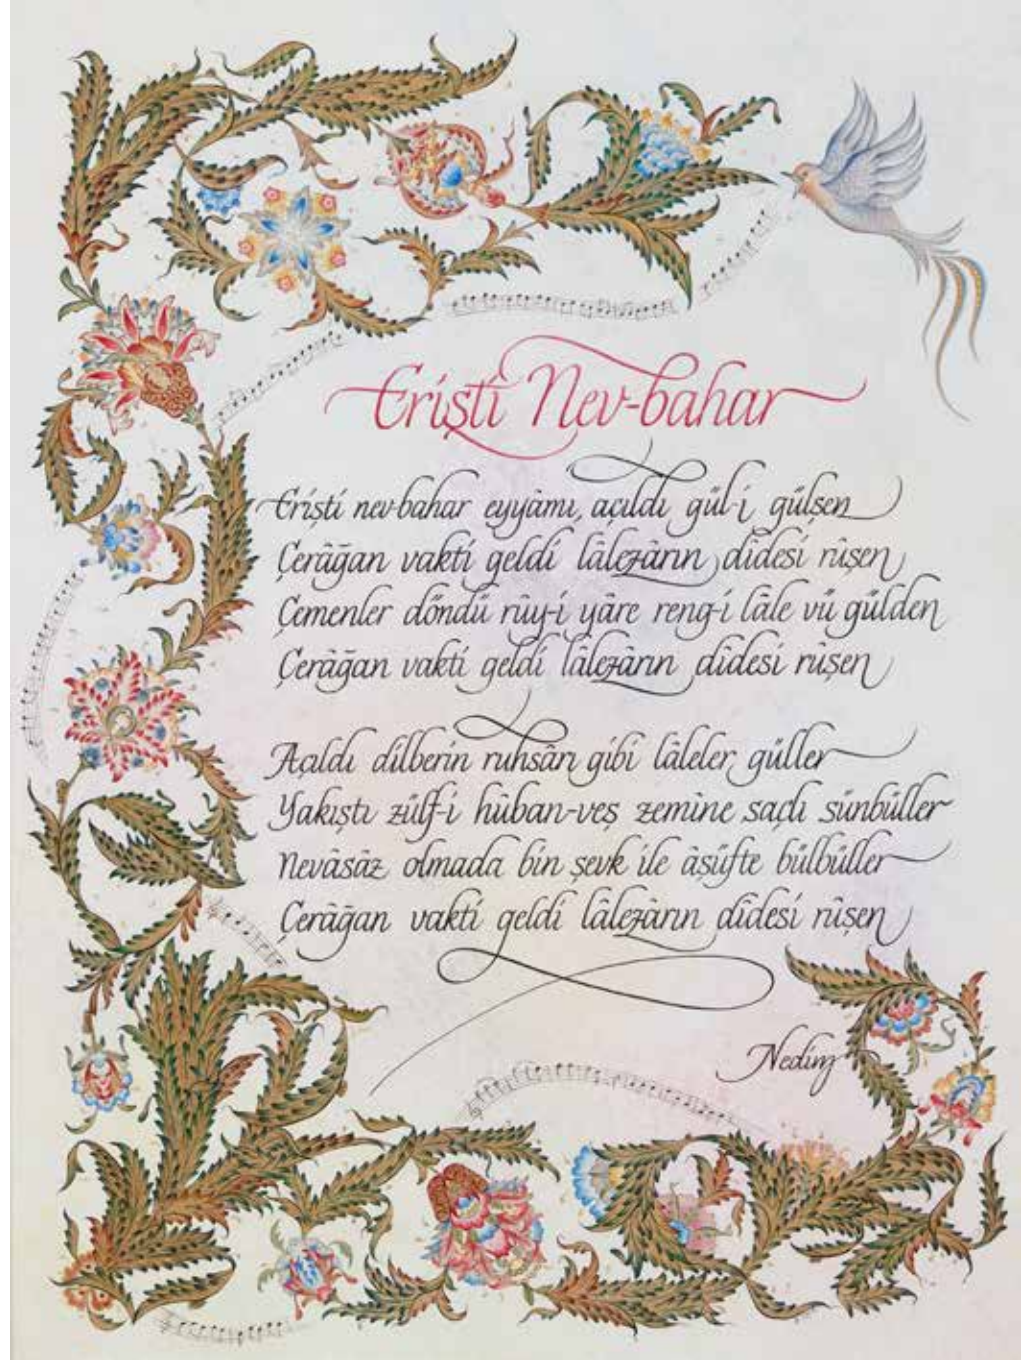 Erişti Nev-bahar
Erişti nev-bahar eyyâmı, açıldı gül-i gülşen
Çerâğan vakti geldi lâlezârın dîdesi rûşen
Çemenler döndü rûy-i yâre reng-i lâle vü gülden
Çerâğan vakti geldi lâlezârın dîdesi rûşen
Açıldı dilberin ruhsârı gibi lâleler, güller
Yakıştı zülf-i hûban-veş zemine saçlı sünbüller
Nevâsâz olmada bin şevk ile âşüfte bülbüller
Çerâğan vakti geldi lâlezârın dîdesi rûşen
Nedim